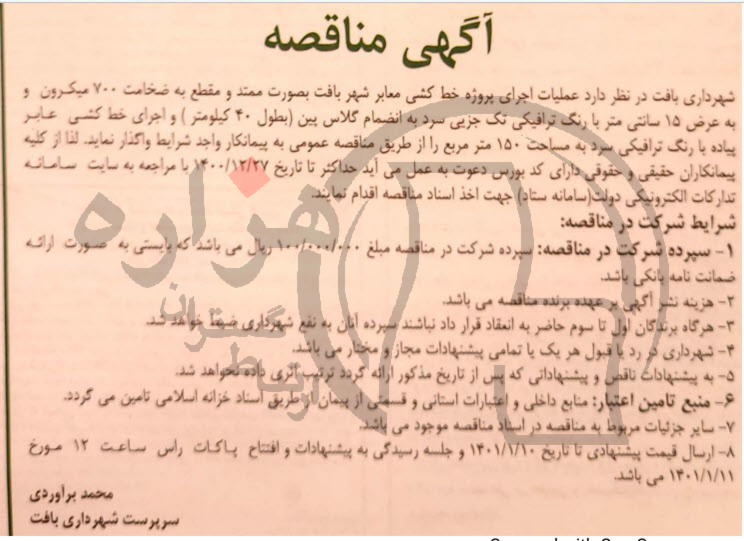 آگهی مناقصه
شهرداری بافت در نظر دارد عملیات اجرای پروژه خط کشی معابر شهر بافت بصورت ممتد و مقطع به ضخامت ۷۰۰ میکرون و
به عرض ۱۵ سانتی متر با رنگ ترافیکی تک جزیی سرد به انضمام گلاس پین (بطول ۴۰ کیلومتر ) و اجرای خط کشی عابر
پیاده با رنگ ترافیکی سرد به مساحت ۱۵۰ متر مربع را از طریق مناقصه عمومی به پیمانکار واجد شرایط واگذار نماید. لذا از کلیه
پیمانکاران حقیقی و حقوقی دارای کد بورس دعوت به عمل می آید حداکثر تا تاریخ ۱۴۰۰/۱۲/۲۷ با مراجعه به سایت سامانه
تدارکات الکترونیکی دولت(سامانه ستاد) جهت اخذ اسناد مناقصه اقدام نمایند.
شرایط شرکت در مناقصه:
۱- سپرده شرکت در مناقصه: سپرده شرکت در مناقصه مبلغ ۱۰۰/۰۰۰/۰۰۰ ریال می باشد که بایستی به صورت ارائه
ضمانت نامه بانکی باشد.
۲- هزینه نشر آگهی بر عهده برنده مناقصه می باشد.
۳- هرگاه برندگان اول تا سوم حاضر به انعقاد قرار داد نباشند سپرده آنان به نفع شهرداری ضبط خواهد شد.
۴- شهرداری در رد یا قبول هر یک یا تمامی پیشنهادات مجاز و مختار می باشد.
۵- به پیشنهادات ناقص و پیشنهاداتی که پس از تاریخ مذکور ارائه گردد ترتیب اثری داده نخواهد شد.
۶- منبع تامین اعتبار: منابع داخلی و اعتبارات استانی و قسمتی از پیمان از طریق اسناد خزانه اسلامی تامین می گردد.
۷- سایر جزئیات مربوط به مناقصه در اسناد مناقصه موجود می باشد.
۸- ارسال قیمت پیشنهادی تا تاریخ ۱۴۰۱/۱/۱۰ و جلسه رسیدگی به پیشنهادات و افتتاح پاکات راس ساعت ۱۲ مورخ
۱۴۰۱/۱/۱۱ می باشد.
محمد برآوردی
سرپرست شهرداری بافت
هزاره
گستران